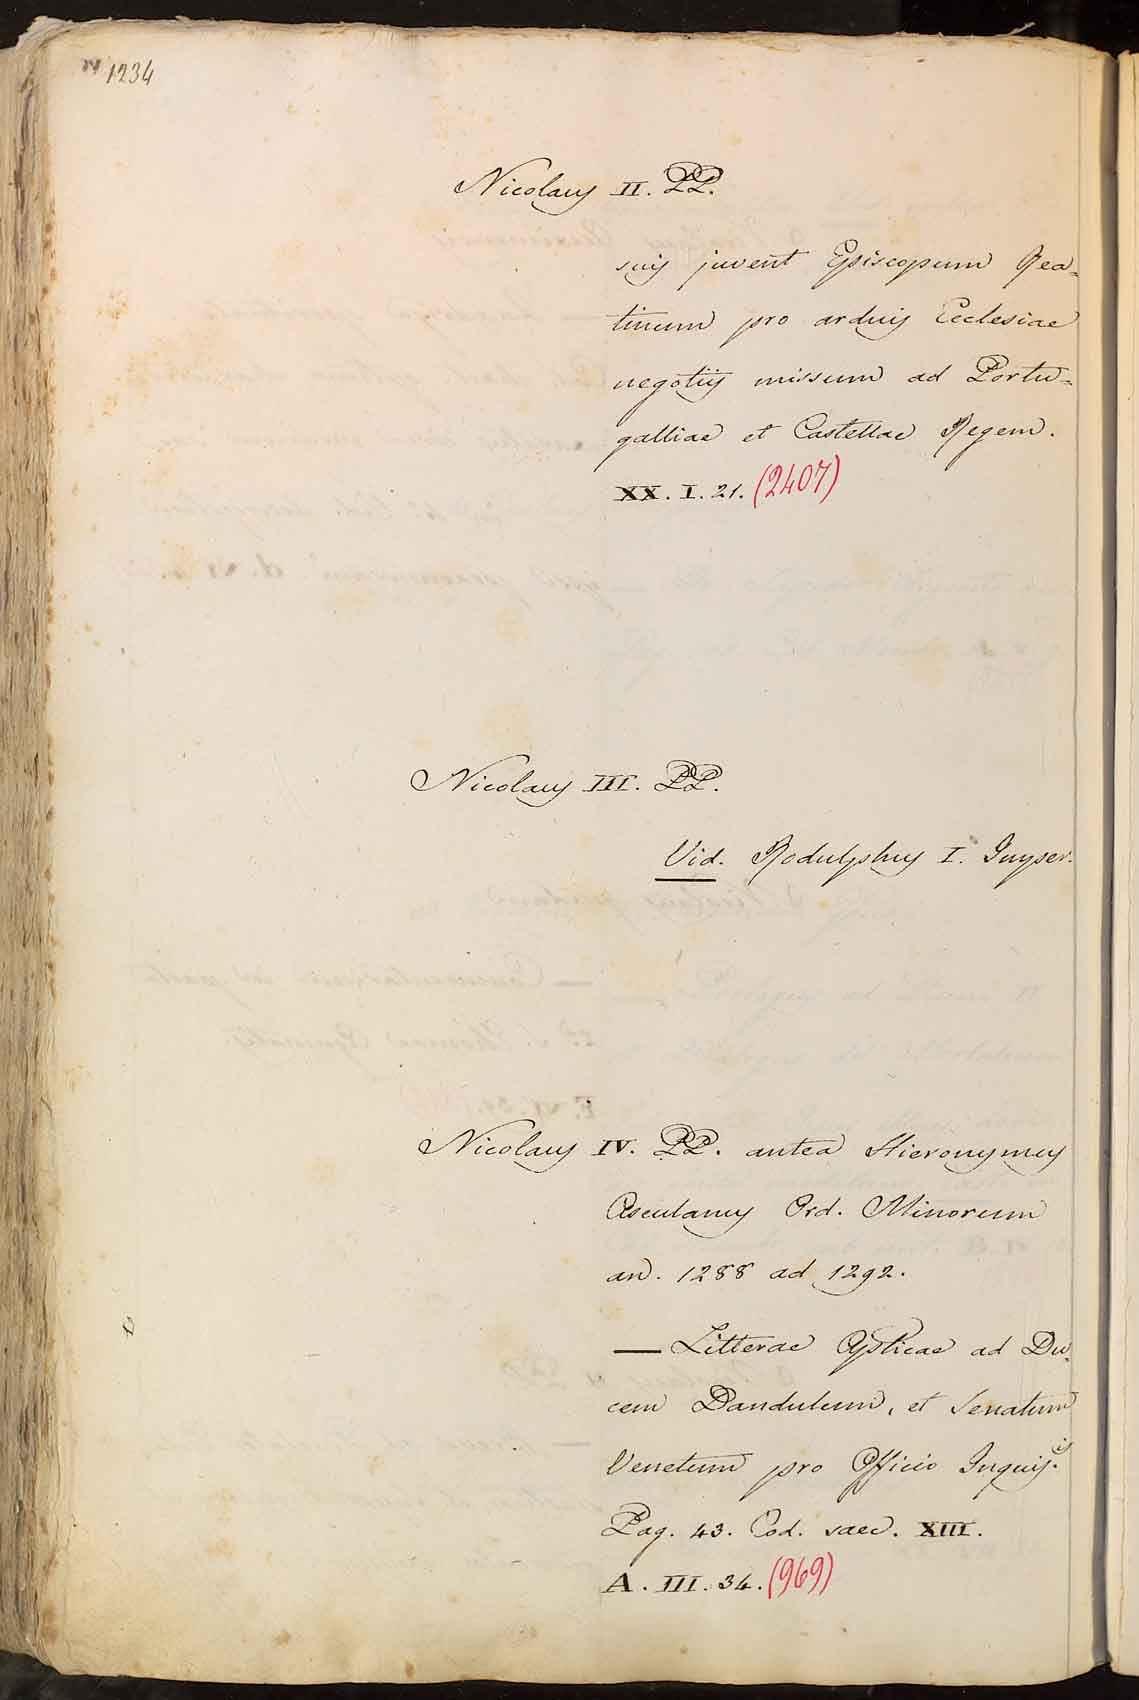 1234
Nicolaus II. PP.
suis juvent Episcopum Rea=
tinum pro arduis Ecclesiae
negotiis missum ad Portu=
galliae et Castellae Regem.
XX. I. 21. (2407)
Nicolaus III. PP.
Vid. Rodulphus I. Imper.
Nicolaus IV. PP. antea Hieronymus
Asculanus Ord. Minorum
an. 1288 ad 1292.
— Litterae Aplicae ad Du=
cem Dandulum, et Senatum
Venetum pro Officio Inquis.
Pag. 43. Cod. saec. XIII.
A. III. 34. (969)